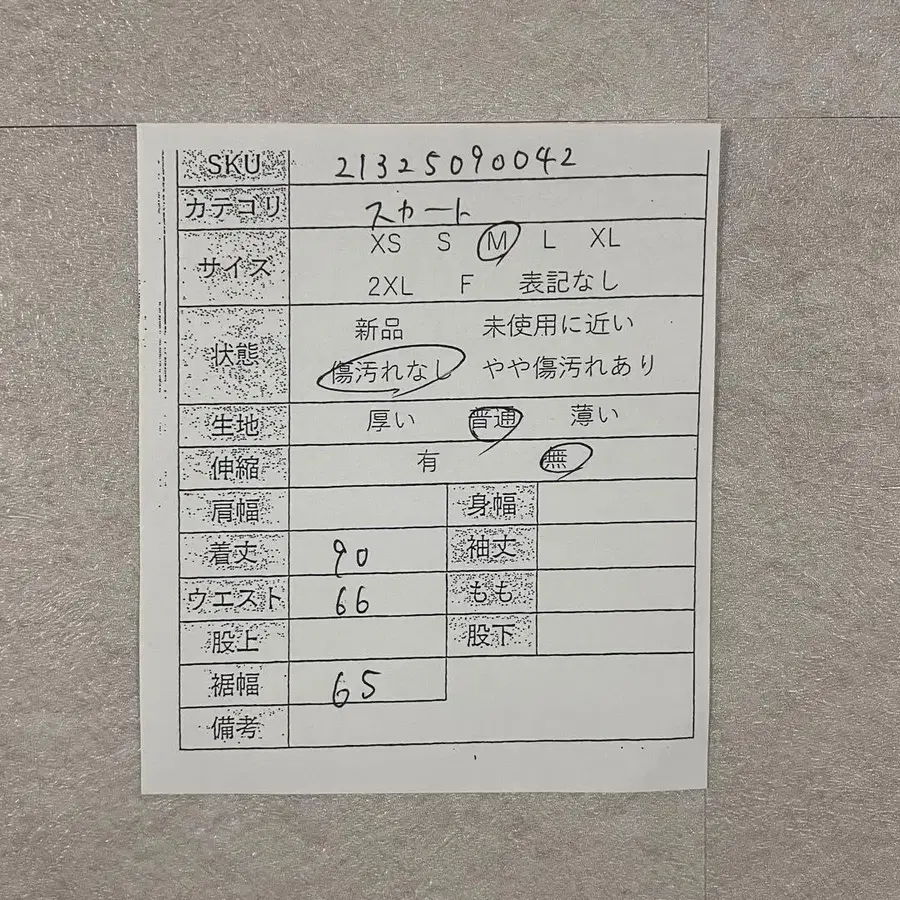 SKU 21325090042
カテゴリ スカート
サイズ XS S M L XL
2XL F 表記なし
状態 新品 未使用に近い
傷汚れなし やや傷汚れあり
生地 厚い 普通 薄い
伸縮 有 無
肩幅 身幅
着丈 90 袖丈
ウエスト 66 もも
股上 股下
裾幅 65
備考